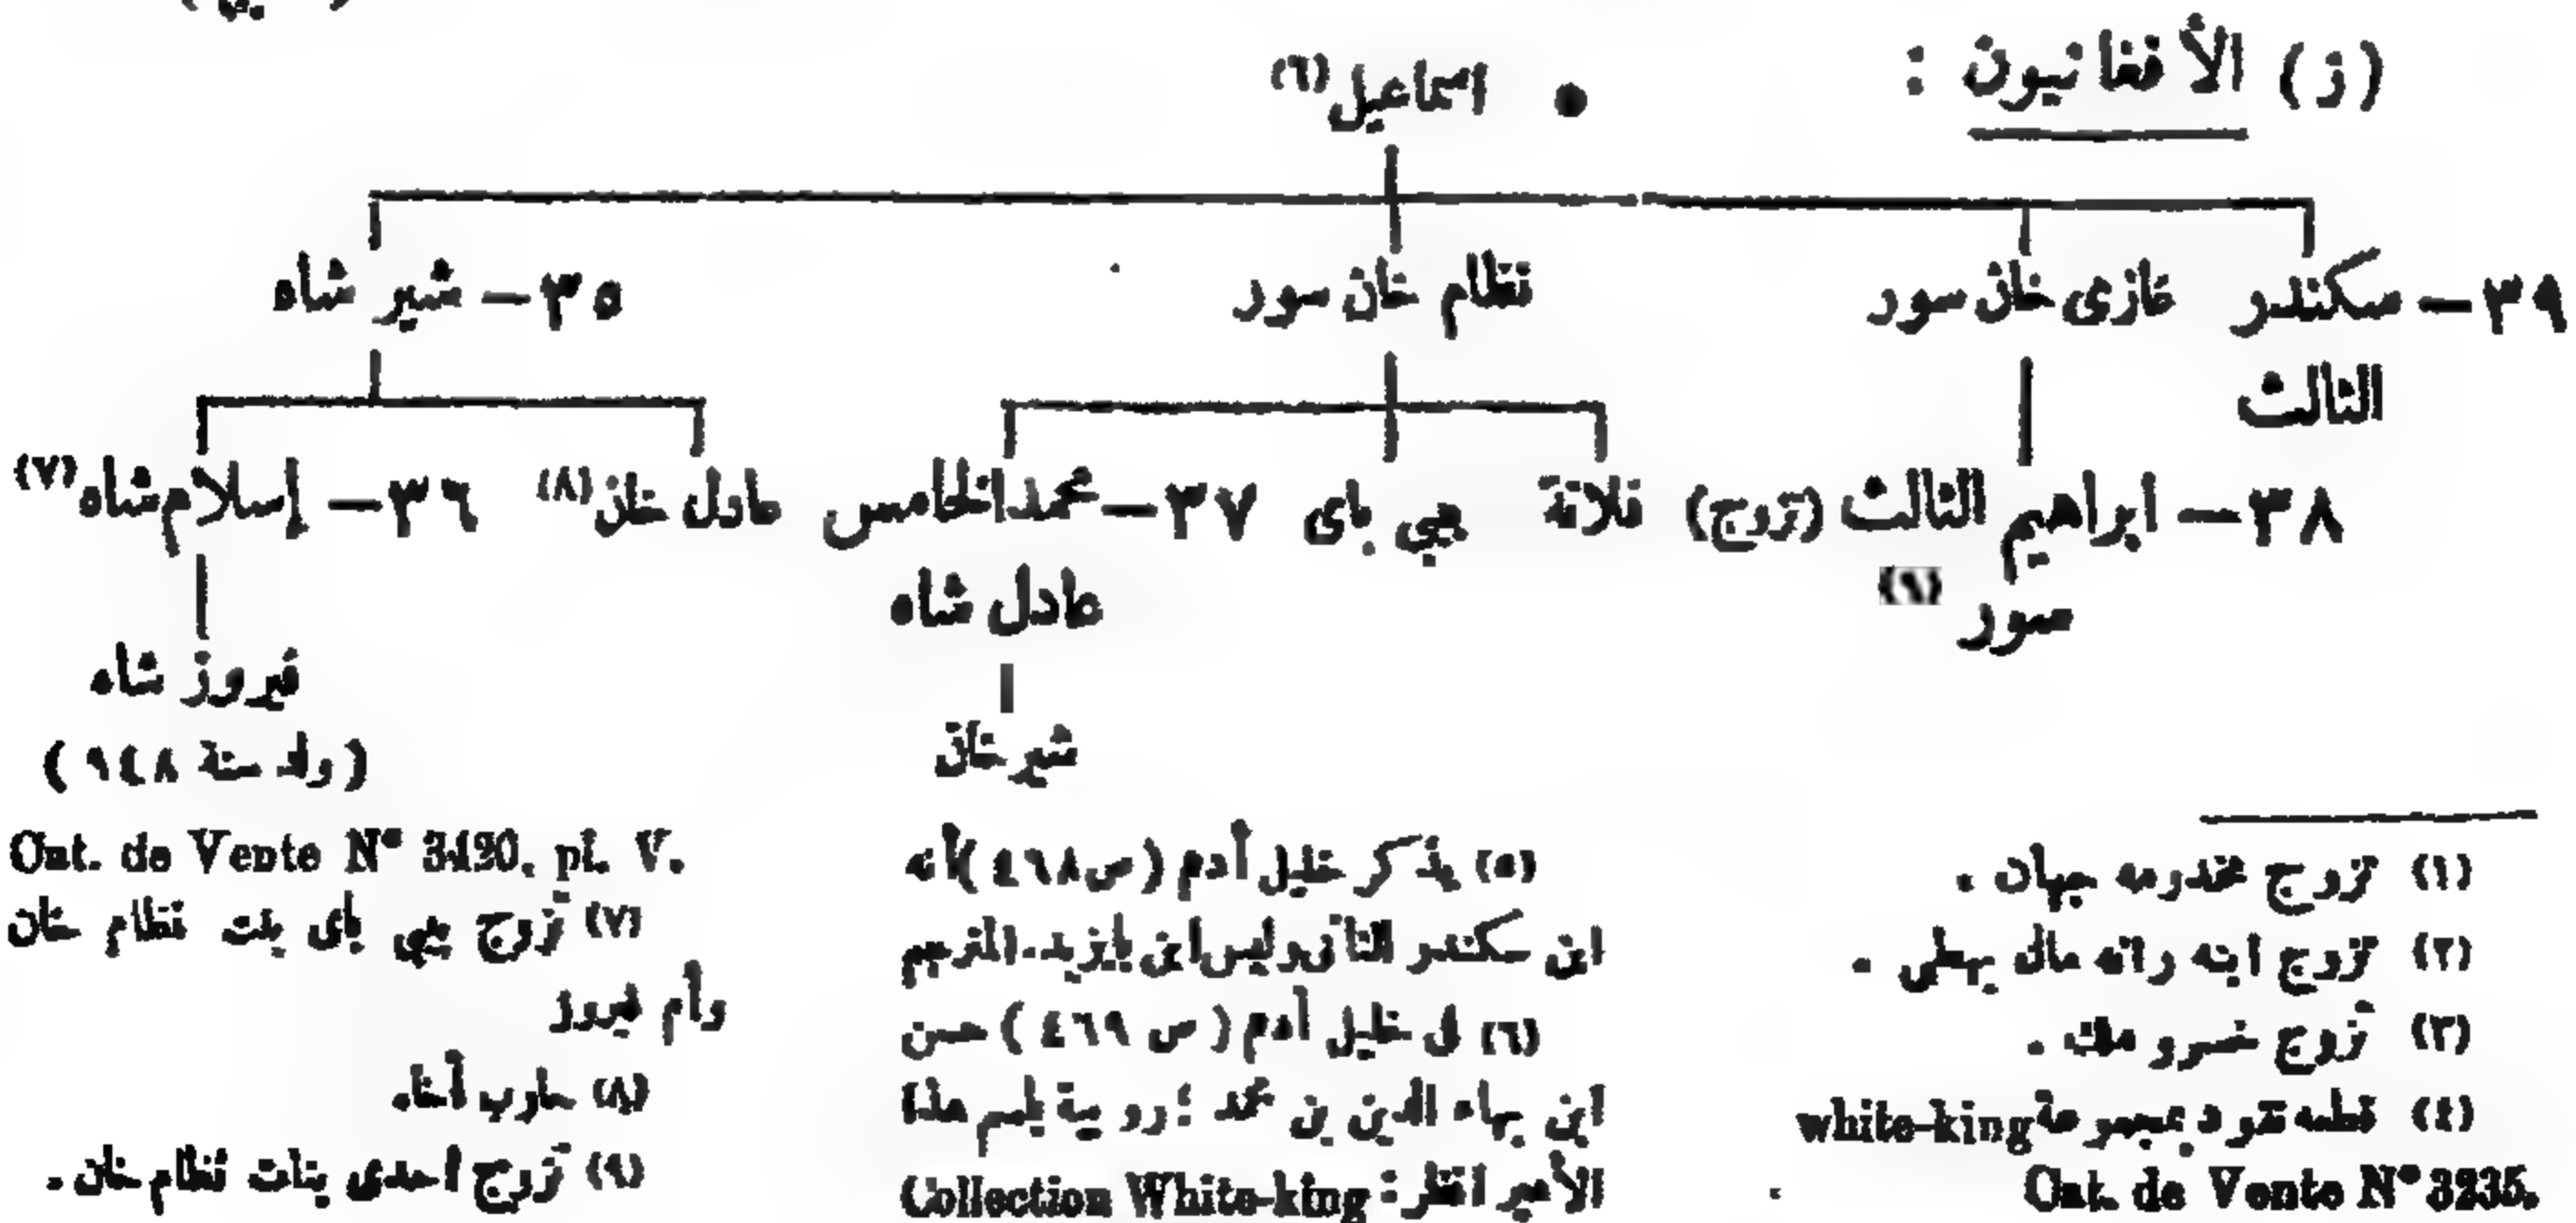 (ز) الأفغانيون :
• اسماعيل (٦)
٣٩ – سكندر الثالث
غازى خان سور
نظام خان سور
٣٥ – شير شاه
٣٨ – ابراهيم الثالث سور (٩)
(تزوج)
فلانة
بيبى باى
٣٧ – محمد الخامس عادل شاه
عادل خان (٨)
٣٦ – إسلام شاه (٧)
شير خان
فيروز شاه
(ولد سنة ٩٤٨)
(١) تزوج مخدرمه جهان .
(٢) تزوج ابنه رانه مال بهطى .
(٣) تزوج خسرو ملك .
(٤) قطعه نقود بمجموعة white-king
Cat. de Vente N° 3235.
(٥) يذكر خليل أدم (ص ٤٦٨) أنه
ابن سكندر الثانى وليس ابن بايزيد. المترجم
(٦) فى خليل أدم (ص ٤٦٩) حسن
ابن بهاء الدين بن محمد ؛ روبية باسم هذا
الأمير انظر : Collection White-king
Cat. de Vente N° 3490, pl. V.
(٧) تزوج بيبى باى بنت نظام خان
وأم فيروز
(٨) حارب أخاه.
(٩) تزوج احدى بنات نظام خان .